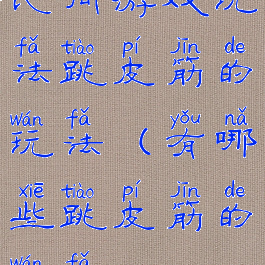 民间游戏玩
fǎ tiào pí jīn de
法跳皮筋的
wán fǎ yǒu nǎ
玩法（有哪
xiē tiào pí jīn de
些跳皮筋的
wán fǎ